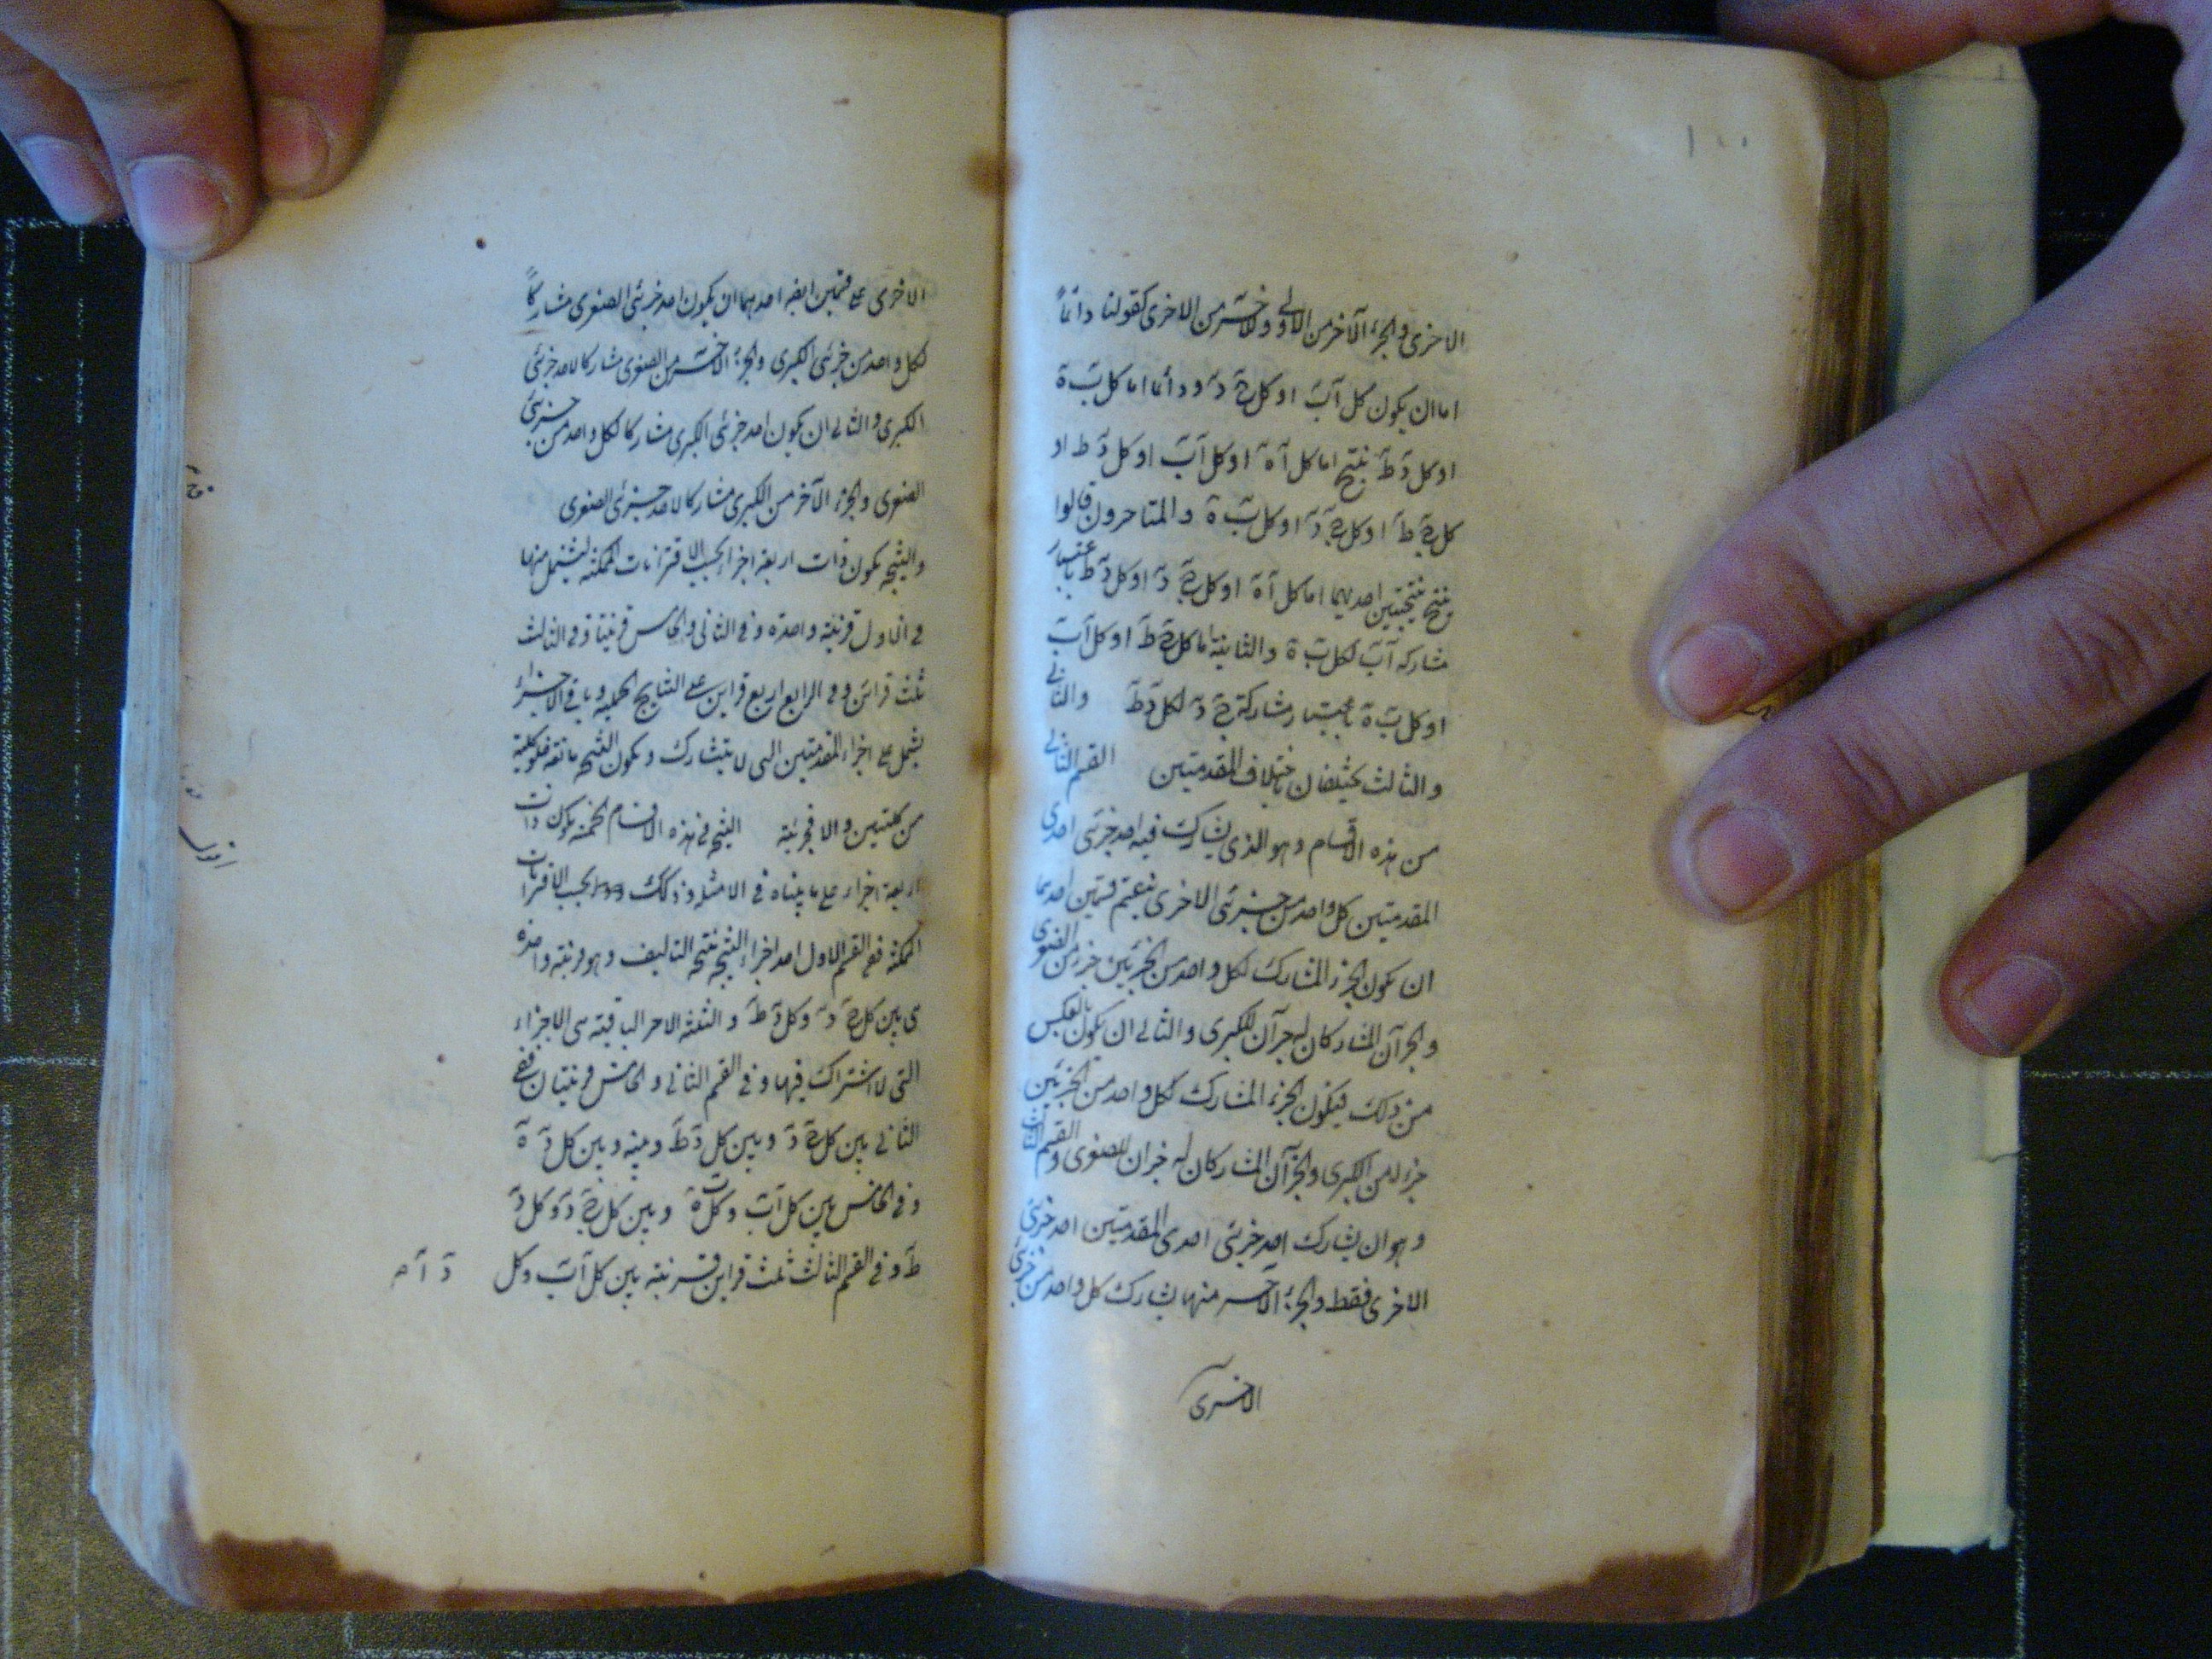 الاخرى والجزء الآخر من الاولى وللآخر من الاخرى كقولنا دائماً
اما ان يكون كل آب او كل ج د ودائما اما كل ب ه
او كل د ط ينتج اما كل آ ه او كل آب او كل د ط او
كل ج ط او كل ج د او كل ب ه والمتاخرون قالوا
ينتج نتيجتين احديهما اما كل آ ه او كل ج د او كل د ط باعتبار
مشاركة آب لكل ب ه والثانية اما كل ج ط او كل آب
او كل ب ه باعتبار مشاركة ج د لكل د ط والثاني
والثالث يختلفان باختلاف المقدمتين القسم الثاني
من هذه الاقسام وهو الذي يشارك فيه احد جزئي احدى
المقدمتين كل واحد من جزئي الاخرى ينقسم قسمين احدهما
ان يكون الجزء المشارك لكل واحد من الجزئين جزء من الصغرى
والجزآن المشاركان له جزآن للكبرى والثاني ان يكون بالعكس
من ذلك فيكون الجزء المشارك لكل واحد من الجزئين
جزء من الكبرى والجزآن المشاركان له جزان للصغرى والقسم الثالث
وهو ان يشارك احد جزئي احدى المقدمتين احد جزئي
الاخرى فقط والجزء الآخر منها يشارك كل واحد من جزئي
الاخرى
الاخرى على قسمين ايضا احدهما ان يكون احد جزئي الصغرى مشاركاً
لكل واحد من جزئي الكبرى والجزء الآخر من الصغرى مشاركا لاحد جزئي
الكبرى والثاني ان يكون احد جزئي الكبرى مشاركا لكل واحد من جزئي
الصغرى والجزء الآخر من الكبرى مشاركا لاحد جزئي الصغرى
والنتيجة يكون ذات اربعة اجزاء بحسب الاقترانات الممكنة يشتمل منها
في الاول قرينة واحدة وفي الثاني والخامس قرينتان وفي الثالث
ثلث قراين وفي الرابع اربع قراين على النتايج الحملية وباقي الاجزاء
يشمل على اجزاء المقدمتين التي لا يتشارك ويكون النتيجة مانعة خلو كلية
من كليتين والا فجزئية النتيجة في هذه الاقسام الخمسة يكون ذات
اربعة اجزاء على ما بيناه في الامثلة وذلك بحسب الاقترانات
الممكنة ففي القسم الاول احد اجزاء النتيجة نتيجة التاليف وهو قرينة واحدة
هي بين كل ج د وكل د ط والثلثة الاخر الباقية هي الاجزاء
التي لا اشتراك فيها وفي القسم الثاني والخامس قرينتان ففي
الثاني بين كل ج د وبين كل د ط وبينه وبين كل د ه
وفي الخامس بين كل آب وكل ب ه وبين كل ج د وكل د
ط وفي القسم الثالث ثلث قراين قرينة بين كل آب وكل